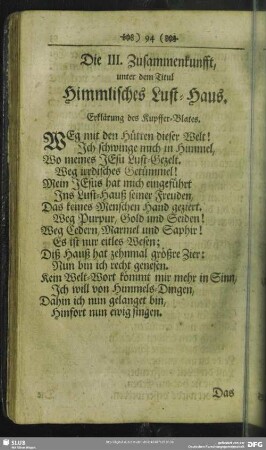 ) 94 (
Die III. Zusammenkunfft,
unter dem Titul
Himmlisches Lust-Haus.
Erklärung des Kupffer-Blates.
WEg mit den Hütten dieser Welt!
Ich schwinge mich in Himmel,
Wo meines JEsu Lust-Gezelt.
Weg irrdisches Getümmel!
Mein JEsus hat mich eingeführt
Ins Lust-Hauß seiner Freuden,
Das keines Menschen Hand geziert.
Weg Purpur, Gold und Seiden!
Weg Cedern, Marmel und Saphir!
Es ist nur eitles Wesen;
Diß Hauß hat zehnmal größre Zier;
Nun bin ich recht genesen.
Kein Welt-Wort kömmt nur mehr in Sinn,
Ich will von Himmels-Dingen,
Dahin ich nun gelanget bin,
Hinfort nun ewig singen.
Das
SLUB
Wir führen Wissen.
gefördert von der
DFG
Deutschen Forschungsgemeinschaft